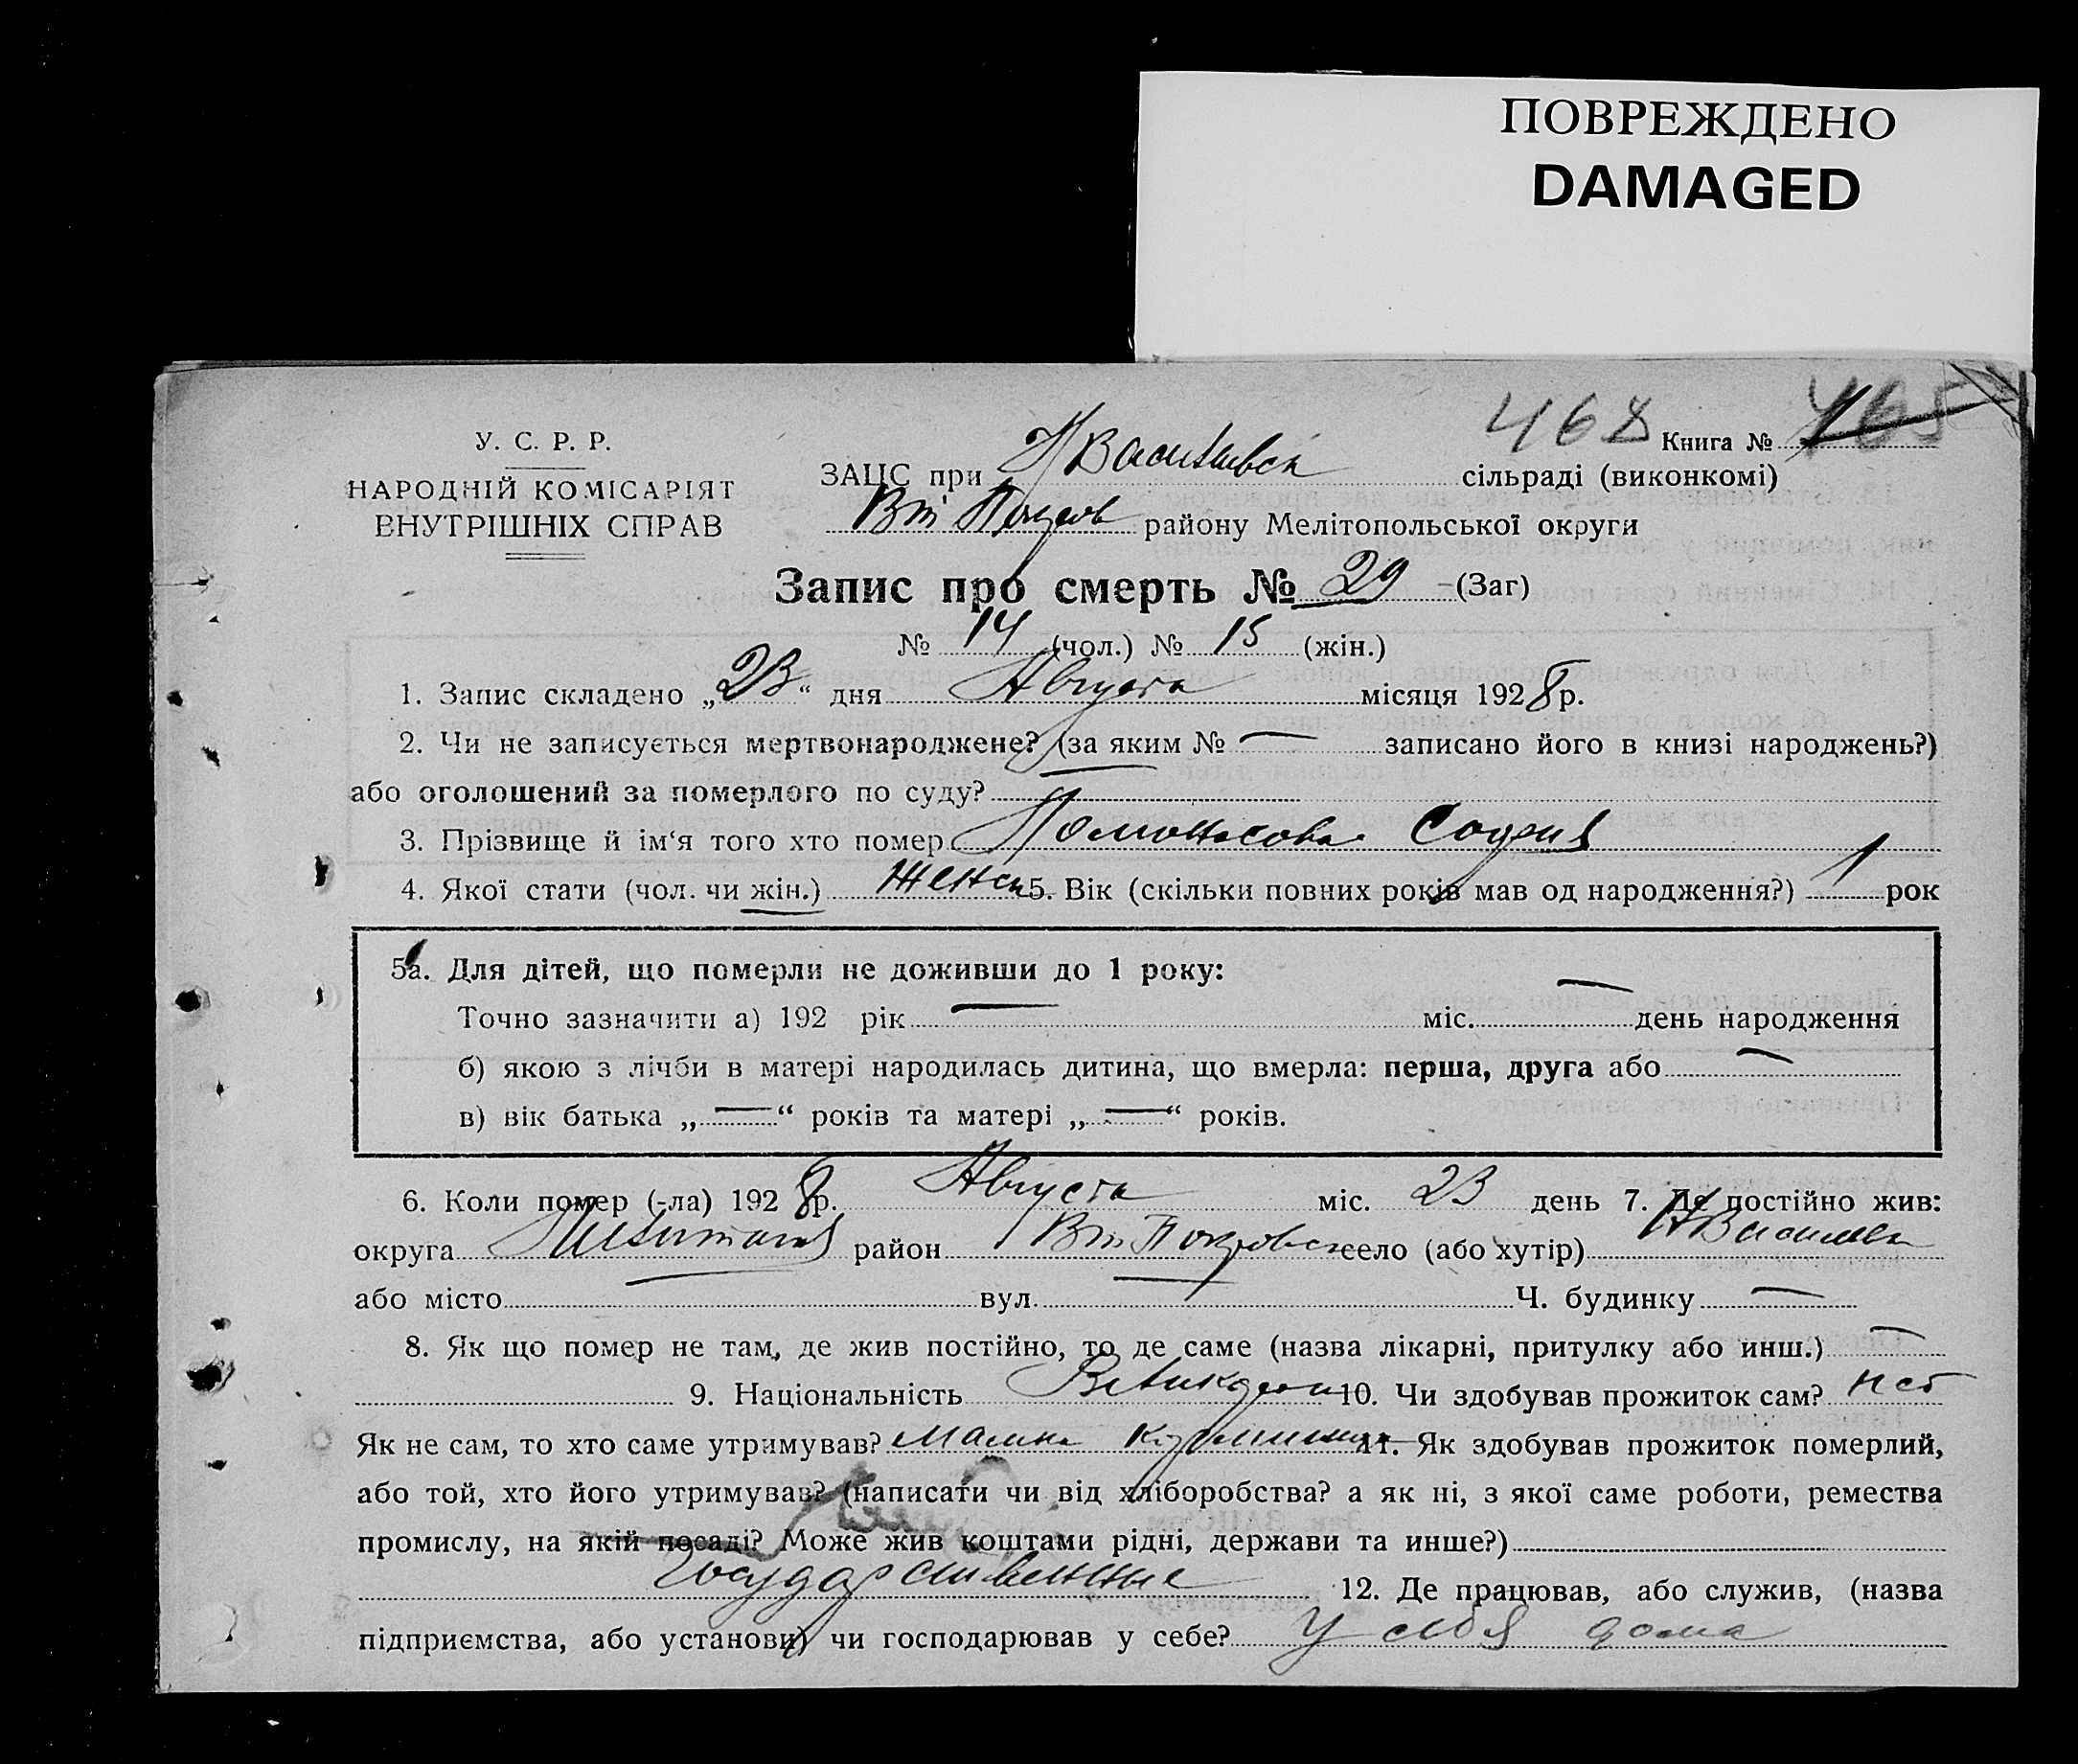 ПОВРЕЖДЕНО
DAMAGED
468 Книга №
У. С. Р. Р.
НАРОДНІЙ КОМІСАРІЯТ
ВНУТРІШНІХ СПРАВ
ЗАЦС при сільраді (виконкомі)
району Мелітопольської округи
Запис про смерть № 29 (Заг)
№ 14 (чол.) № 15 (жін.)
1. Запис складено „23“ дня Августа місяця 1928 р.
2. Чи не записується мертвонароджене? (за яким № — записано його в книзі народжень?)
або оголошений за померлого по суду?
3. Прізвище й ім‘я того хто помер София
4. Якої стати (чол. чи жін.) Женск 5. Вік (скільки повних років мав од народження?) 1 рок
5а. Для дітей, що померли не доживши до 1 року:
Точно зазначити а) 192 рік — міс. — день народження
б) якою з лічби в матері народилась дитина, що вмерла: перша, друга або —
в) вік батька „—“ років та матері „—“ років.
6. Коли помер (-ла) 1928 р. Августа міс. 23 день 7. Де постійно жив:
округа район Вт Покровск село (або хутір) Н Василевк
або місто — вул. — Ч. будинку —
8. Як що помер не там, де жив постійно, то де саме (назва лікарні, притулку або инш.) —
9. Національність 10. Чи здобував прожиток сам? нет
Як не сам, то хто саме утримував? 11. Як здобував прожиток померлий,
або той, хто його утримував? (написати чи від хліборобства? а як ні, з якої саме роботи, ремества
промислу, на якій посаді? Може жив коштами рідні, держави та инше?)
Государственные 12. Де працював, або служив, (назва
підприємства, або установи) чи господарював у себе? У себя дома